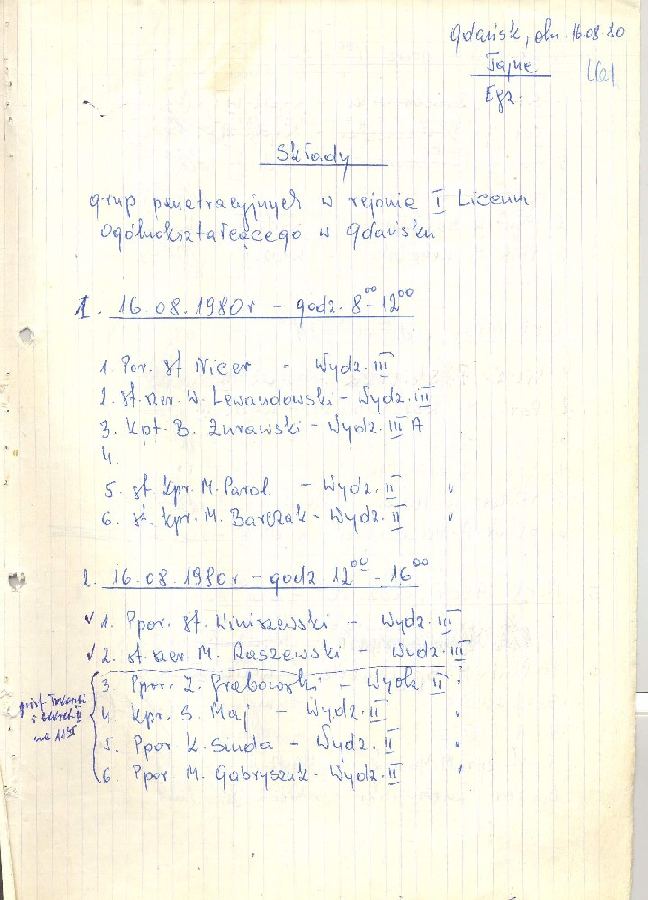 Gdańsk, dn. 16.08.80
Tajne
Egz.
Składy
grup penetracyjnych w rejonie I Liceum
Ogólnokształcącego w Gdańsku
1. 16.08.1980r - godz. 8⁰⁰-12⁰⁰
1. Por. st Nicer - Wydz. III
2. st. szer. W. Lewandowski - Wydz. III
3. kpt. B. Żurawski - Wydz. III A
4.
5. st. kpr. M. Parol - Wydz. II "
6. st. kpr. M. Barczak - Wydz. II "
2. 16.08.1980r - godz 12⁰⁰ - 16⁰⁰
✓ 1. Ppor. st. Kiniszewski - Wydz. III
✓ 2. st. szer M. Raszewski - Wydz. III
3 Ppor. Z. Grabowski - Wydz II "
4 kpr. S. Maj - Wydz. II "
5. Ppor K. Sinda - Wydz. II "
6. Ppor M. Gabryszik - Wydz. II "